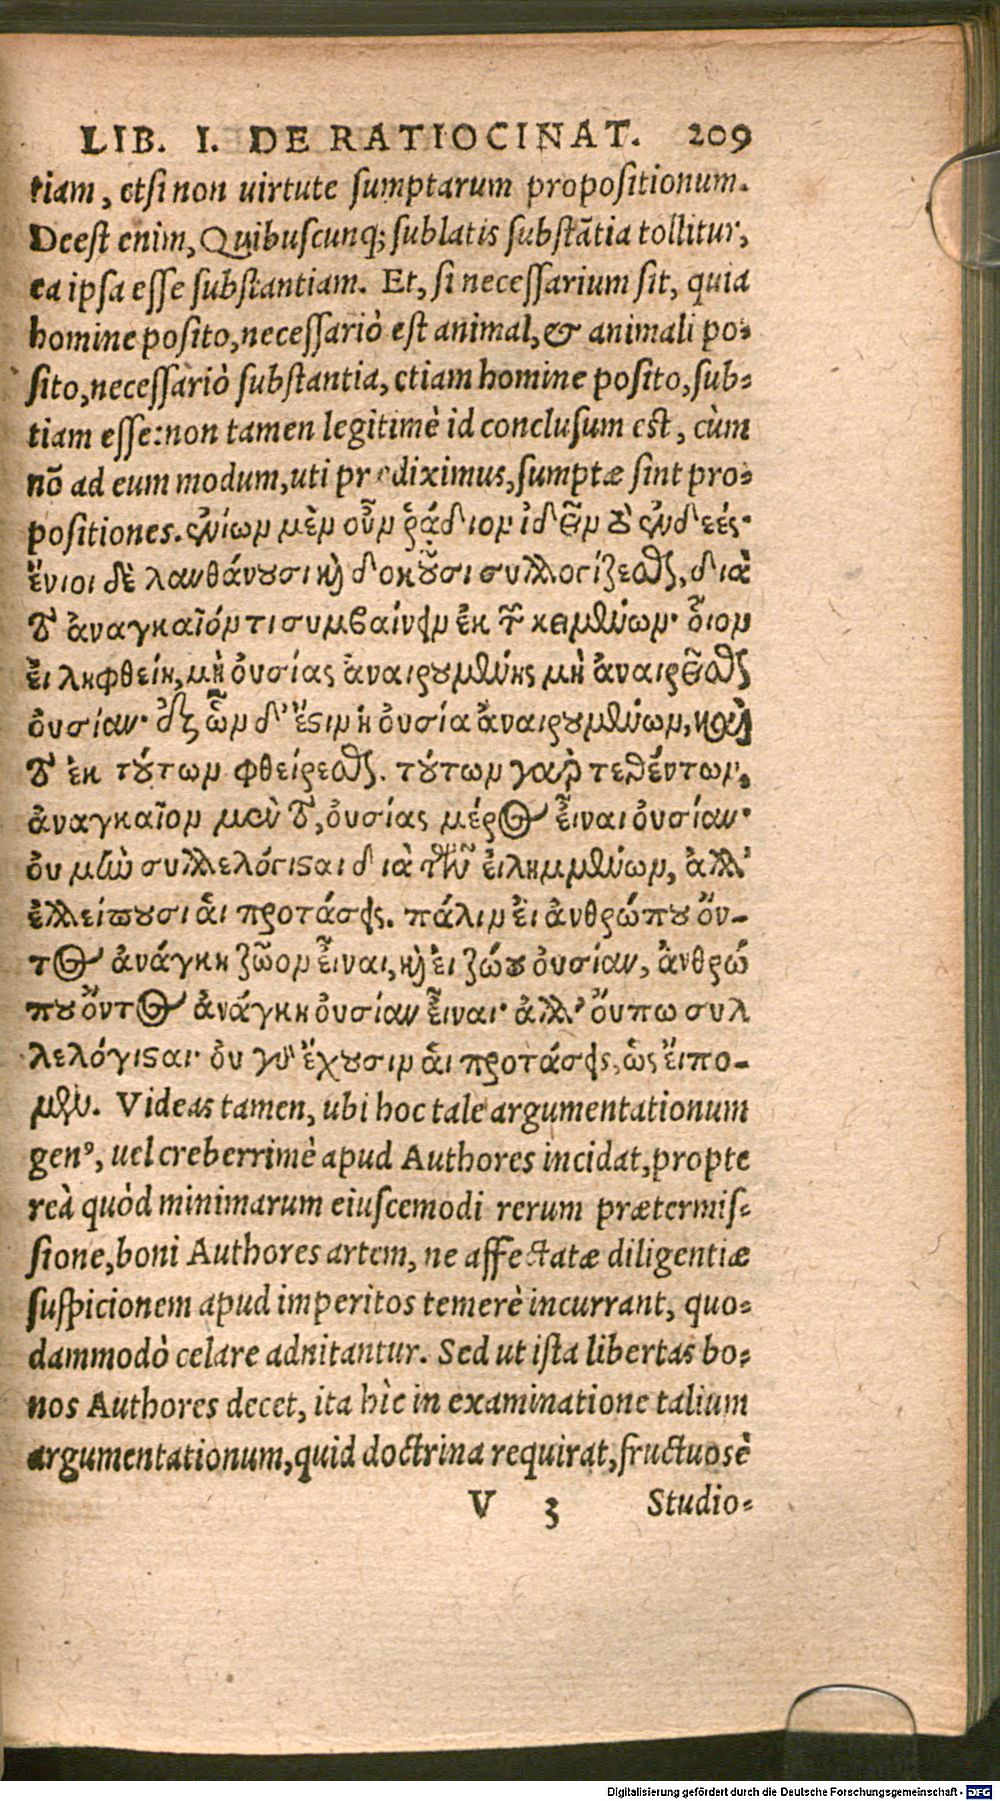 LIB. I. DE RATIOCINAT. 209
tiam, etsi non uirtute sumptarum propositionum.
Deest enim, Quibuscunq; sublatis substãtia tollitur,
ea ipsa esse substantiam. Et, si necessarium sit, quia
homine posito, necessariò est animal, & animali po-
sito, necessariò substantia, etiam homine posito, sub-
tiam esse: non tamen legitimè id conclusum est, cùm
nõ ad eum modum, uti prædiximus, sumptæ sint pro-
positiones. ἐνίων μὲν οὖν ῥᾴδιον ἰδεῖν τὸ ἐνδεές·
ἔνιοι δὲ λανθάνουσι καὶ δοκοῦσι συλλογίζεσθαι, διὰ
τὸ ἀναγκαῖόν τι συμβαίνειν ἐκ τῶν κειμένων· οἷον
εἰ ληφθείη, μὴ οὐσίας ἀναιρουμένης μὴ ἀναιρεῖσθαι
οὐσίαν· ἐξ ὧν δ' ἔστιν ἡ οὐσία ἀναιρουμένων, καὶ
τὸ ἐκ τούτων φθείρεσθαι. τούτων γὰρ τεθέντων,
ἀναγκαῖον μὲν τὸ, οὐσίας μέρος εἶναι οὐσίαν·
οὐ μὴν συλλελόγισται διὰ τῶν εἰλημμένων, ἀλλ'
ἐλλείπουσι αἱ προτάσεις. πάλιν εἰ ἀνθρώπου ὄν-
τος ἀνάγκη ζῷον εἶναι, καὶ εἰ ζώου οὐσίαν, ἀνθρώ
που ὄντος ἀνάγκη οὐσίαν εἶναι· ἀλλ' οὔπω συλ
λελόγισται· οὐ γὰρ ἔχουσιν αἱ προτάσεις, ὡς εἴπο-
μεν. Videas tamen, ubi hoc tale argumentationum
genꝰ, uel creberrimè apud Authores incidat, propte
reà quòd minimarum eiuscemodi rerum prætermis-
sione, boni Authores artem, ne affectatæ diligentiæ
suspicionem apud imperitos temerè incurrant, quo-
dammodò celare adnitantur. Sed ut ista libertas bo-
nos Authores decet, ita hîc in examinatione talium
argumentationum, quid doctrina requirat, fructuosè
V 3 Studio-
Digitalisierung gefördert durch die Deutsche Forschungsgemeinschaft - DFG